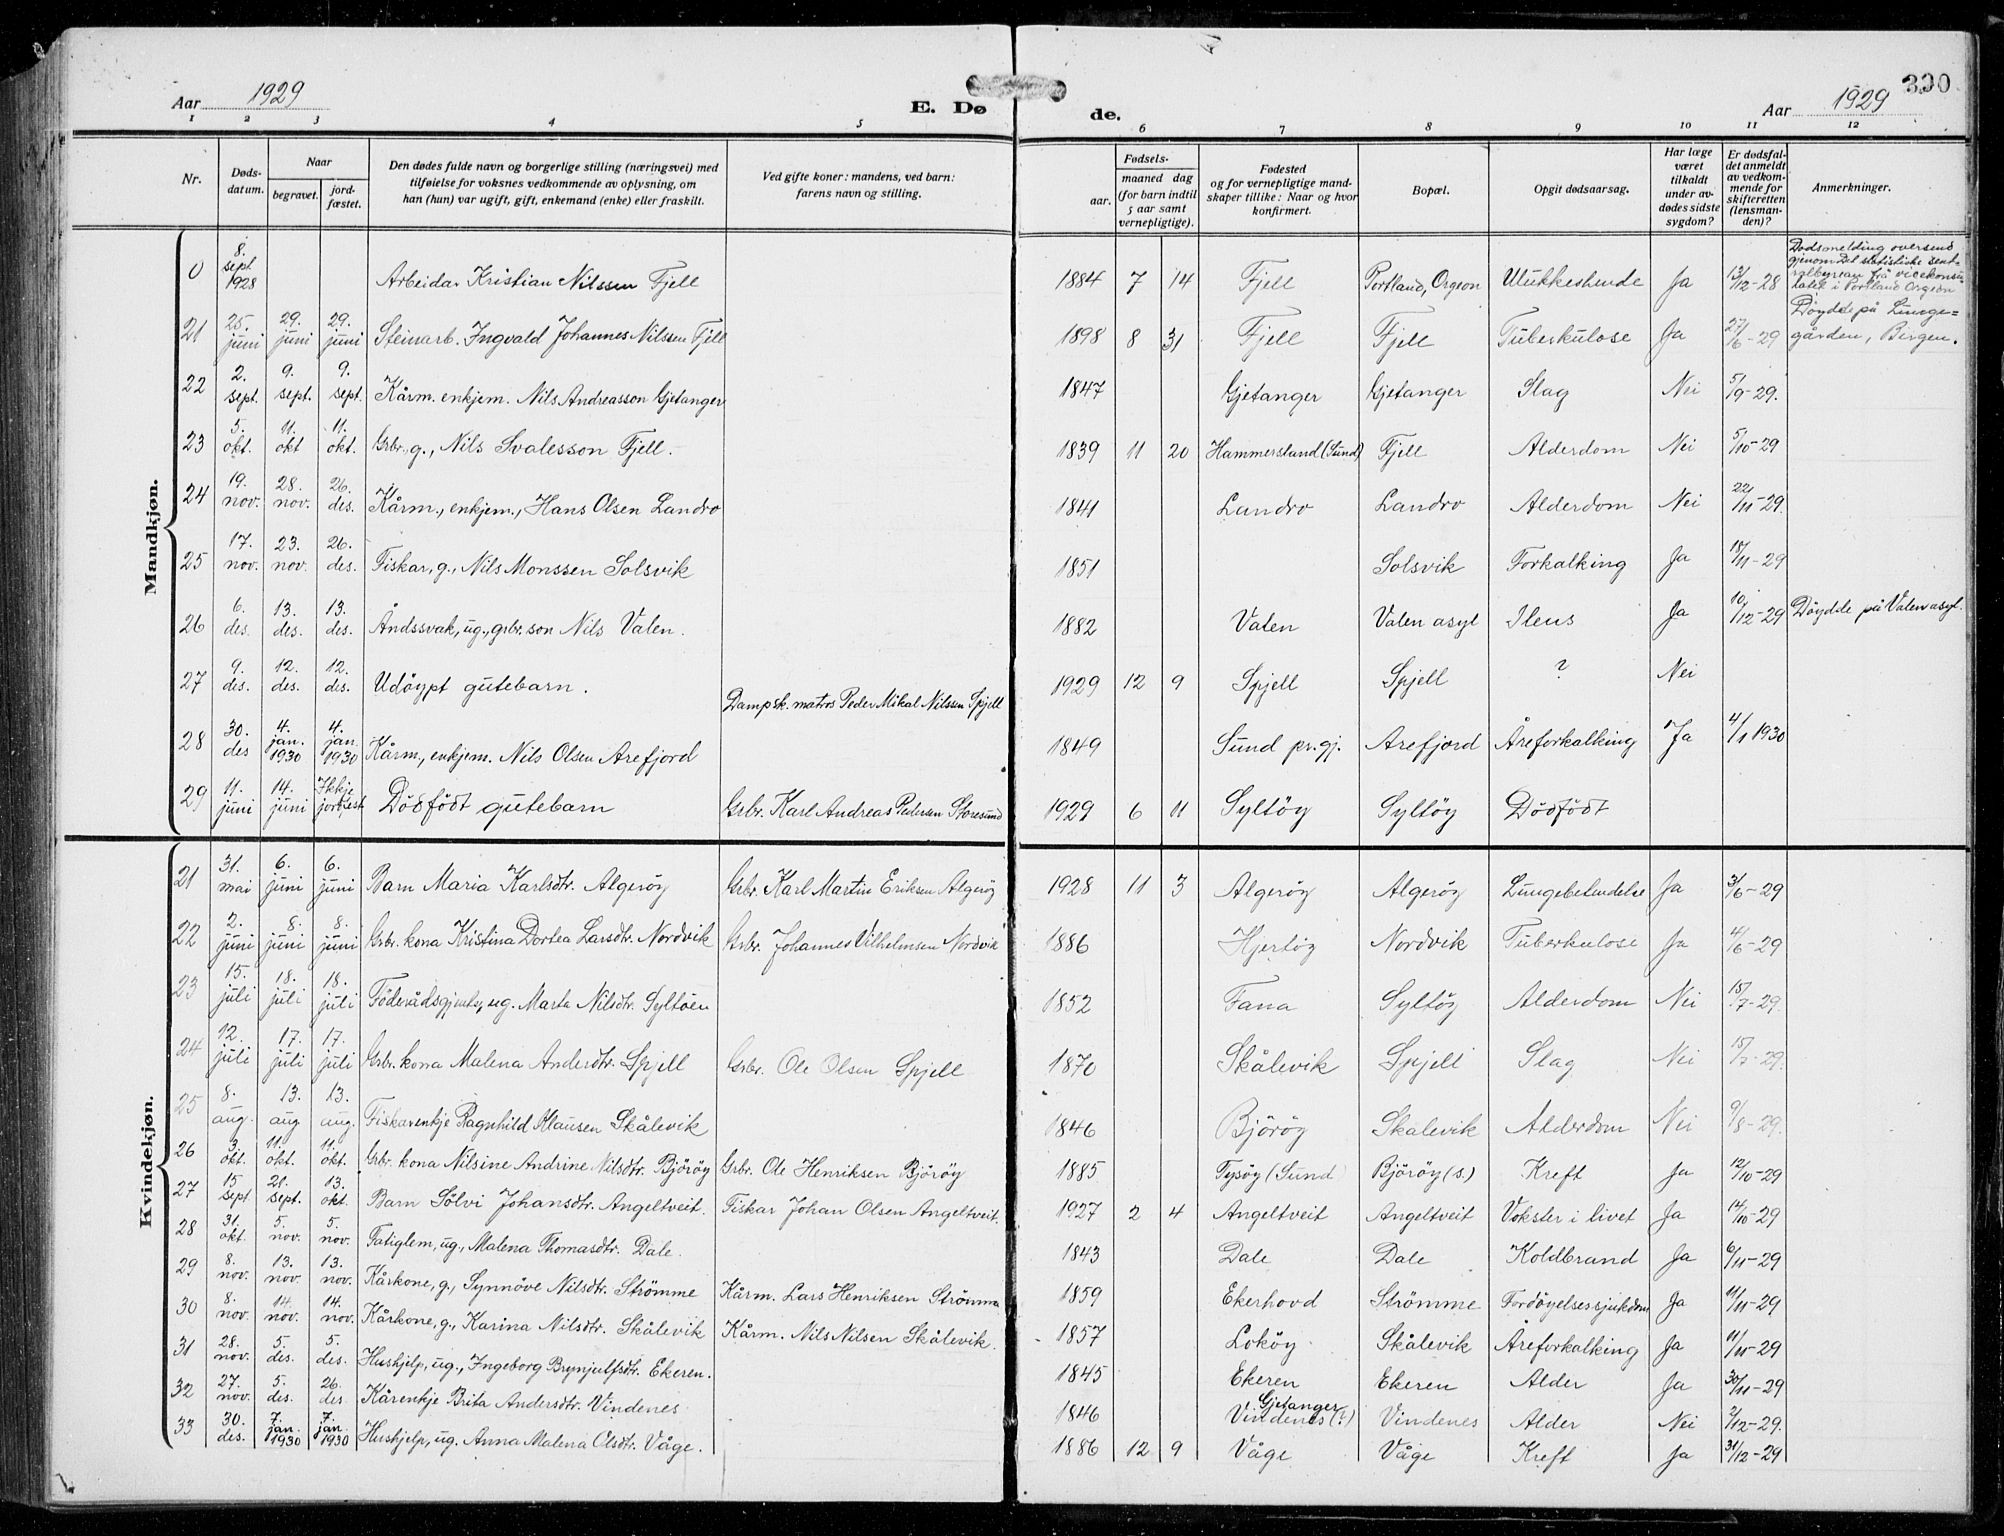 Aar 1929
E. Dø
de.
Aar 1929
330
1 2 3 4 5 6 7 8 9 10 11 12
Nr. | Dødsdatum. | Naar begravet. | jordfæstet. | Den dødes fulde navn og borgerlige stilling (næringsvei) med tilføielse for voksnes vedkommende av oplysning, om han (hun) var ugift, gift, enkemand (enke) eller fraskilt. | Ved gifte koner: mandens, ved barn: farens navn og stilling. | Fødsels- aar. | maaned | dag (for barn indtil 5 aar samt vernepligtige). | Fødested og for vernepligtige mandskaper tillike: Naar og hvor konfirmert. | Bopæl. | Opgit dødsaarsag. | Har læge været tilkaldt under avdødes sidste sygdom? | Er dødsfaldet anmeldt av vedkommende for skifteretten (lensmanden)? | Anmerkninger.
Mandkjøn.
0 | 8. sept 1928 | Arbeidar Kristian Nilssen Fjell | 1884 | 7 | 14 | Fjell | Portland, Orgeon | Ulukkeshende | Ja | 13/12-28 | Dødsmelding oversend gjenom Det statistiske sentralbyreau frå vicekonsulatet i Portland Orgeon
21 | 25. juni | 29. juni | 29. juni | Steinarb. Ingvald Johannes Nilssen Fjell | 1898 | 8 | 31 | Fjell | Fjell | Tuberkulose | Ja | 27/6-29 | Döydde på Lungegården, Bergen.
22 | 2. sept. | 9. sept. | 9. sept. | Kårm. enkjem. Nils Andreasson Gjetanger | 1847 | Gjetanger | Gjetanger | Slag | Nei | 5/9-29.
23 | 5. okt. | 11. okt | 11. okt. | Grbr. g., Nils Svalesson Fjell. | 1839 | 11 | 20 | Hammersland (Sund) | Fjell | Alderdom | Nei | 5/10-29
24 | 19. nov. | 28. nov. | 26. des. | Kårm., enkjem., Hans Olsen Landro | 1841 | Landro | Landro | Alderdom | Nei | 22/11-29.
25 | 17. nov. | 23. nov. | 26. des. | Fiskar, g., Nils Monssen Solsvik | 1851 | Solsvik | Forkalking | Ja | 18/11-29
26 | 6. des. | 13. des. | 13. des. | Åndssvak, ug., grbr. son Nils Valen. | 1882 | Valen | Valen asyl | Ileus | Ja | 10/12-29 | Döydde på Valen asyl.
27 | 9. des. | 12. des. | 12. des. | Udöypt gutebarn. | Dampsk. matros Peder Mikal Nilssen Spjell | 1929 | 12 | 9 | Spjell | Spjell | ? | Nei
28 | 30. des | 4. jan. 1930 | 4. jan. 1930 | Kårm., enkjem. Nils Olsen Arefjord | 1849 | Sund pr.gj. | Arefjord | Åreforkalking | Ja | 4/1 1930
29 | 11. juni | 14. juni | Ikkje jordfest | Dödfödt gutebarn | Grbr. Karl Andreas Pedersen Storesund | 1929 | 6 | 11 | Syltöy | Syltöy | Dödfödt
Kvindekjøn.
21 | 31. mai | 6. juni | 6. juni | Barn Maria Karlsdtr. Algeröy | Grbr. Karl Martin Eriksen Algeröy | 1928 | 11 | 3 | Algeröy | Algeröy | Lungebetendelse | Ja | 3/6-29
22 | 2. juni | 8. juni | 8. juni | Grbr. kona Kristina Dortea Larsdtr. Nordvik | Grbr. Johannes Vilhelmsen Nordvik | 1886 | Hjertöy | Nordvik | Tuberkulose | Ja | 4/6-29
23 | 15. juli | 18. juli | 18. juli | Föderådsgjenta, ug. Marta Nilsdtr. Syltöen | 1852 | Fana | Syltöy | Alderdom | Nei | 18/7-29.
24 | 12. juli | 17. juli | 17. juli | Grbr. kona Malena Andersdtr. Spjell | Grbr. Ole Olsen Spjell | 1870 | Skålevik | Spjell | Slag | Nei | 18/7-29.
25 | 8. aug. | 13. aug | 13. aug. | Fiskarenkje Ragnhild Klausen Skålevik | 1846 | Björöy | Skålevik | Alderdom | Nei | 9/8-29.
26 | 3. okt. | 11. okt. | 11. okt. | Grbr. kona Nilsine Andrine Nilsdtr. Björöy | Grbr. Ole Henriksen Björöy | 1885 | Tysöy (Sund) | Björöy (s.) | Kreft | Ja | 12/10-29
27 | 15 sept | 21. sept. | 13. okt. | Barn Sölvi Johansdtr. Angeltveit. | Fiskar Johan Olsen Angeltveit. | 1927 | 2 | 4 | Angeltveit | Angeltveit | Vokster i livet | Ja | 14/10-29
28 | 31. okt. | 5. nov. | 5. nov. | Fatiglem, ug., Malena Thomasdtr. Dale. | 1843 | Dale | Dale | Koldbrand | Ja | 6/11-29
29 | 8. nov. | 13. nov. | 13. nov. | Kårkone, g., Synnöve Nilsdtr. Strömme | Kårm. Lars Henriksen Strömme | 1859 | Ekerhovd | Strömme | Fordöyelsessjukdom | Ja | 11/11-29
30 | 8. nov. | 14. nov. | 14. nov. | Kårkone, g., Karina Nilsdtr. Skålevik | Kårm. Nils Nilsen Skålevik. | 1857 | Loköy | Skålevik | Åreforkalking | Ja | 11/11-29
31 | 28. nov. | 5. des. | 5. des. | Hushjelp, ug., Ingeborg Brynjulfsdtr. Ekeren. | 1845 | Ekeren | Ekeren | Alder | Ja | 30/11-29
32 | 27. nov. | 5. des. | 26. des | Kårenkje Brita Andersdtr. Vindenes | 1846 | Gjetanger Vindenes (?) | Vindenes | Alder | Nei | 2/12-29.
33 | 30. des. | 7. jan. 1930 | 7. jan. 1930 | Hushjelp, ug. Anna Malena Olsdtr. Våge. | 1886 | 12 | 9 | Våge | Våge | Kreft | Ja | 31/12-29